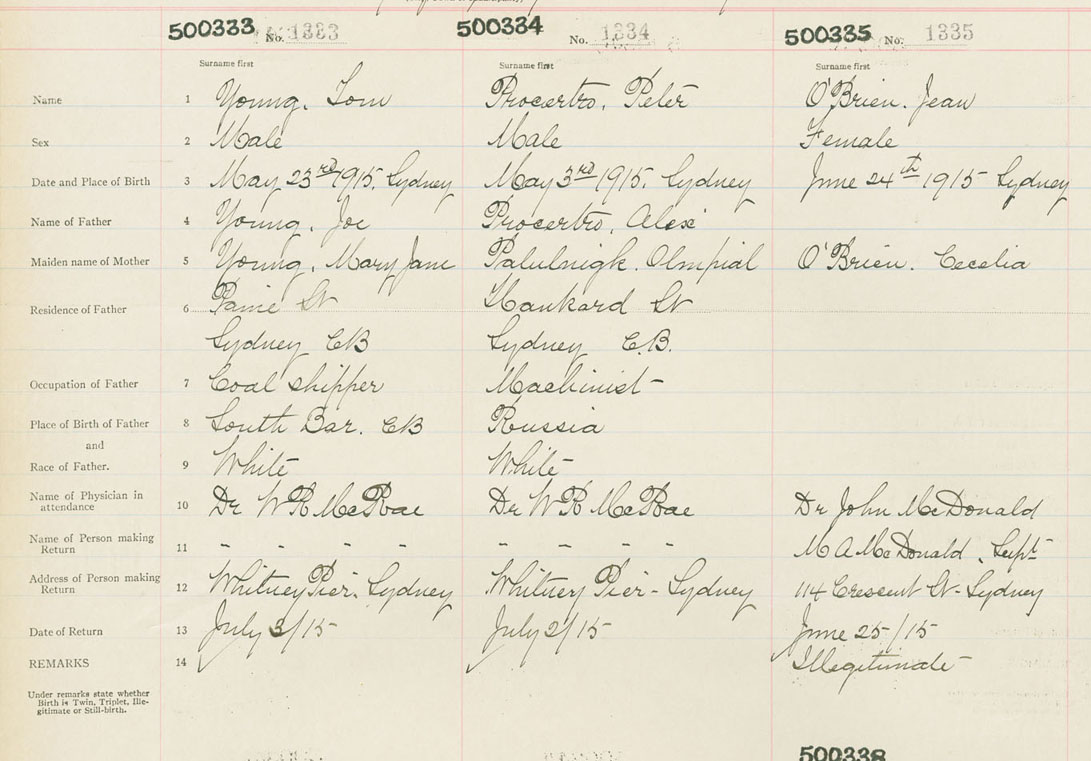 500333 No. 1333 500334 No. 1334 500335 No. 1335
Surname first Surname first Surname first
Name 1 Young, Tom Procertro, Peter O'Brien. Jean
Sex 2 Male Male Female
Date and Place of Birth 3 May 23rd 1915. Sydney May 3rd 1915. Sydney June 24th 1915 Sydney
Name of Father 4 Young, Joe Procertro, Alex
Maiden name of Mother 5 Young, Mary Jane O'Brien. Cecelia
Residence of Father 6 St Hankard St
Sydney CB Sydney C.B.
Occupation of Father 7 Coal shipper Machinist
Place of Birth of Father 8 South Bar. CB Russia
and
Race of Father. 9 White White
Name of Physician in
attendance 10 Dr W R McRae Dr W R McRae Dr John McDonald
Name of Person making
Return 11 - - - - - - - - M A McDonald, Supt
Address of Person making
Return 12 Whitney Pier, Sydney Whitney Pier - Sydney 114 Crescent St - Sydney
Date of Return 13 July 3/15 July 2/15 June 25/15
REMARKS 14 Illegitimate
Under remarks state whether
Birth is Twin, Triplet, Ille-
gitimate or Still-birth.
500338